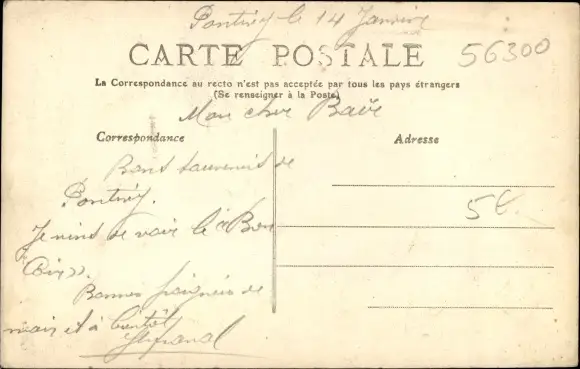 Pontivy le 14 Janvier
CARTE POSTALE
56300
La Correspondance au recto n'est pas acceptée par tous les pays étrangers
(Se renseigner à la Poste)
Mon cher
Correspondance
Bons souvenirs de
Pontivy.
Je viens de voir le "Bon
Coin".
Bonnes poignées de
main et à bientôt
Adresse
5€.